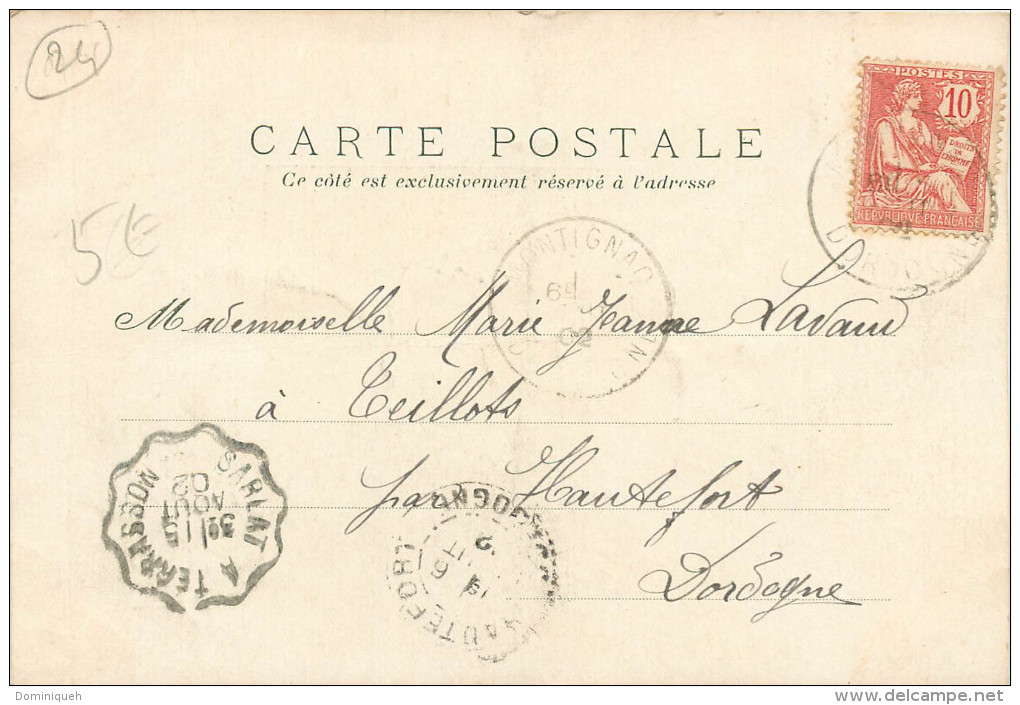 24
POSTES
10
DROITS
DE
L'HOMME
REPUBLIQUE FRANÇAISE
CARTE POSTALE
Ce côté est exclusivement réservé à l'adresse
5€
DORDOGNE
MONTIGNAC
02
Mademoiselle Marie Jeanne Lavaud
à Teillots
par Hautefort
Dordogne
SARLAT A TERRASSON
3º
15
AOUT
02
HAUTEFORT
DORDOGNE
Dominiqueh
delcampe.net